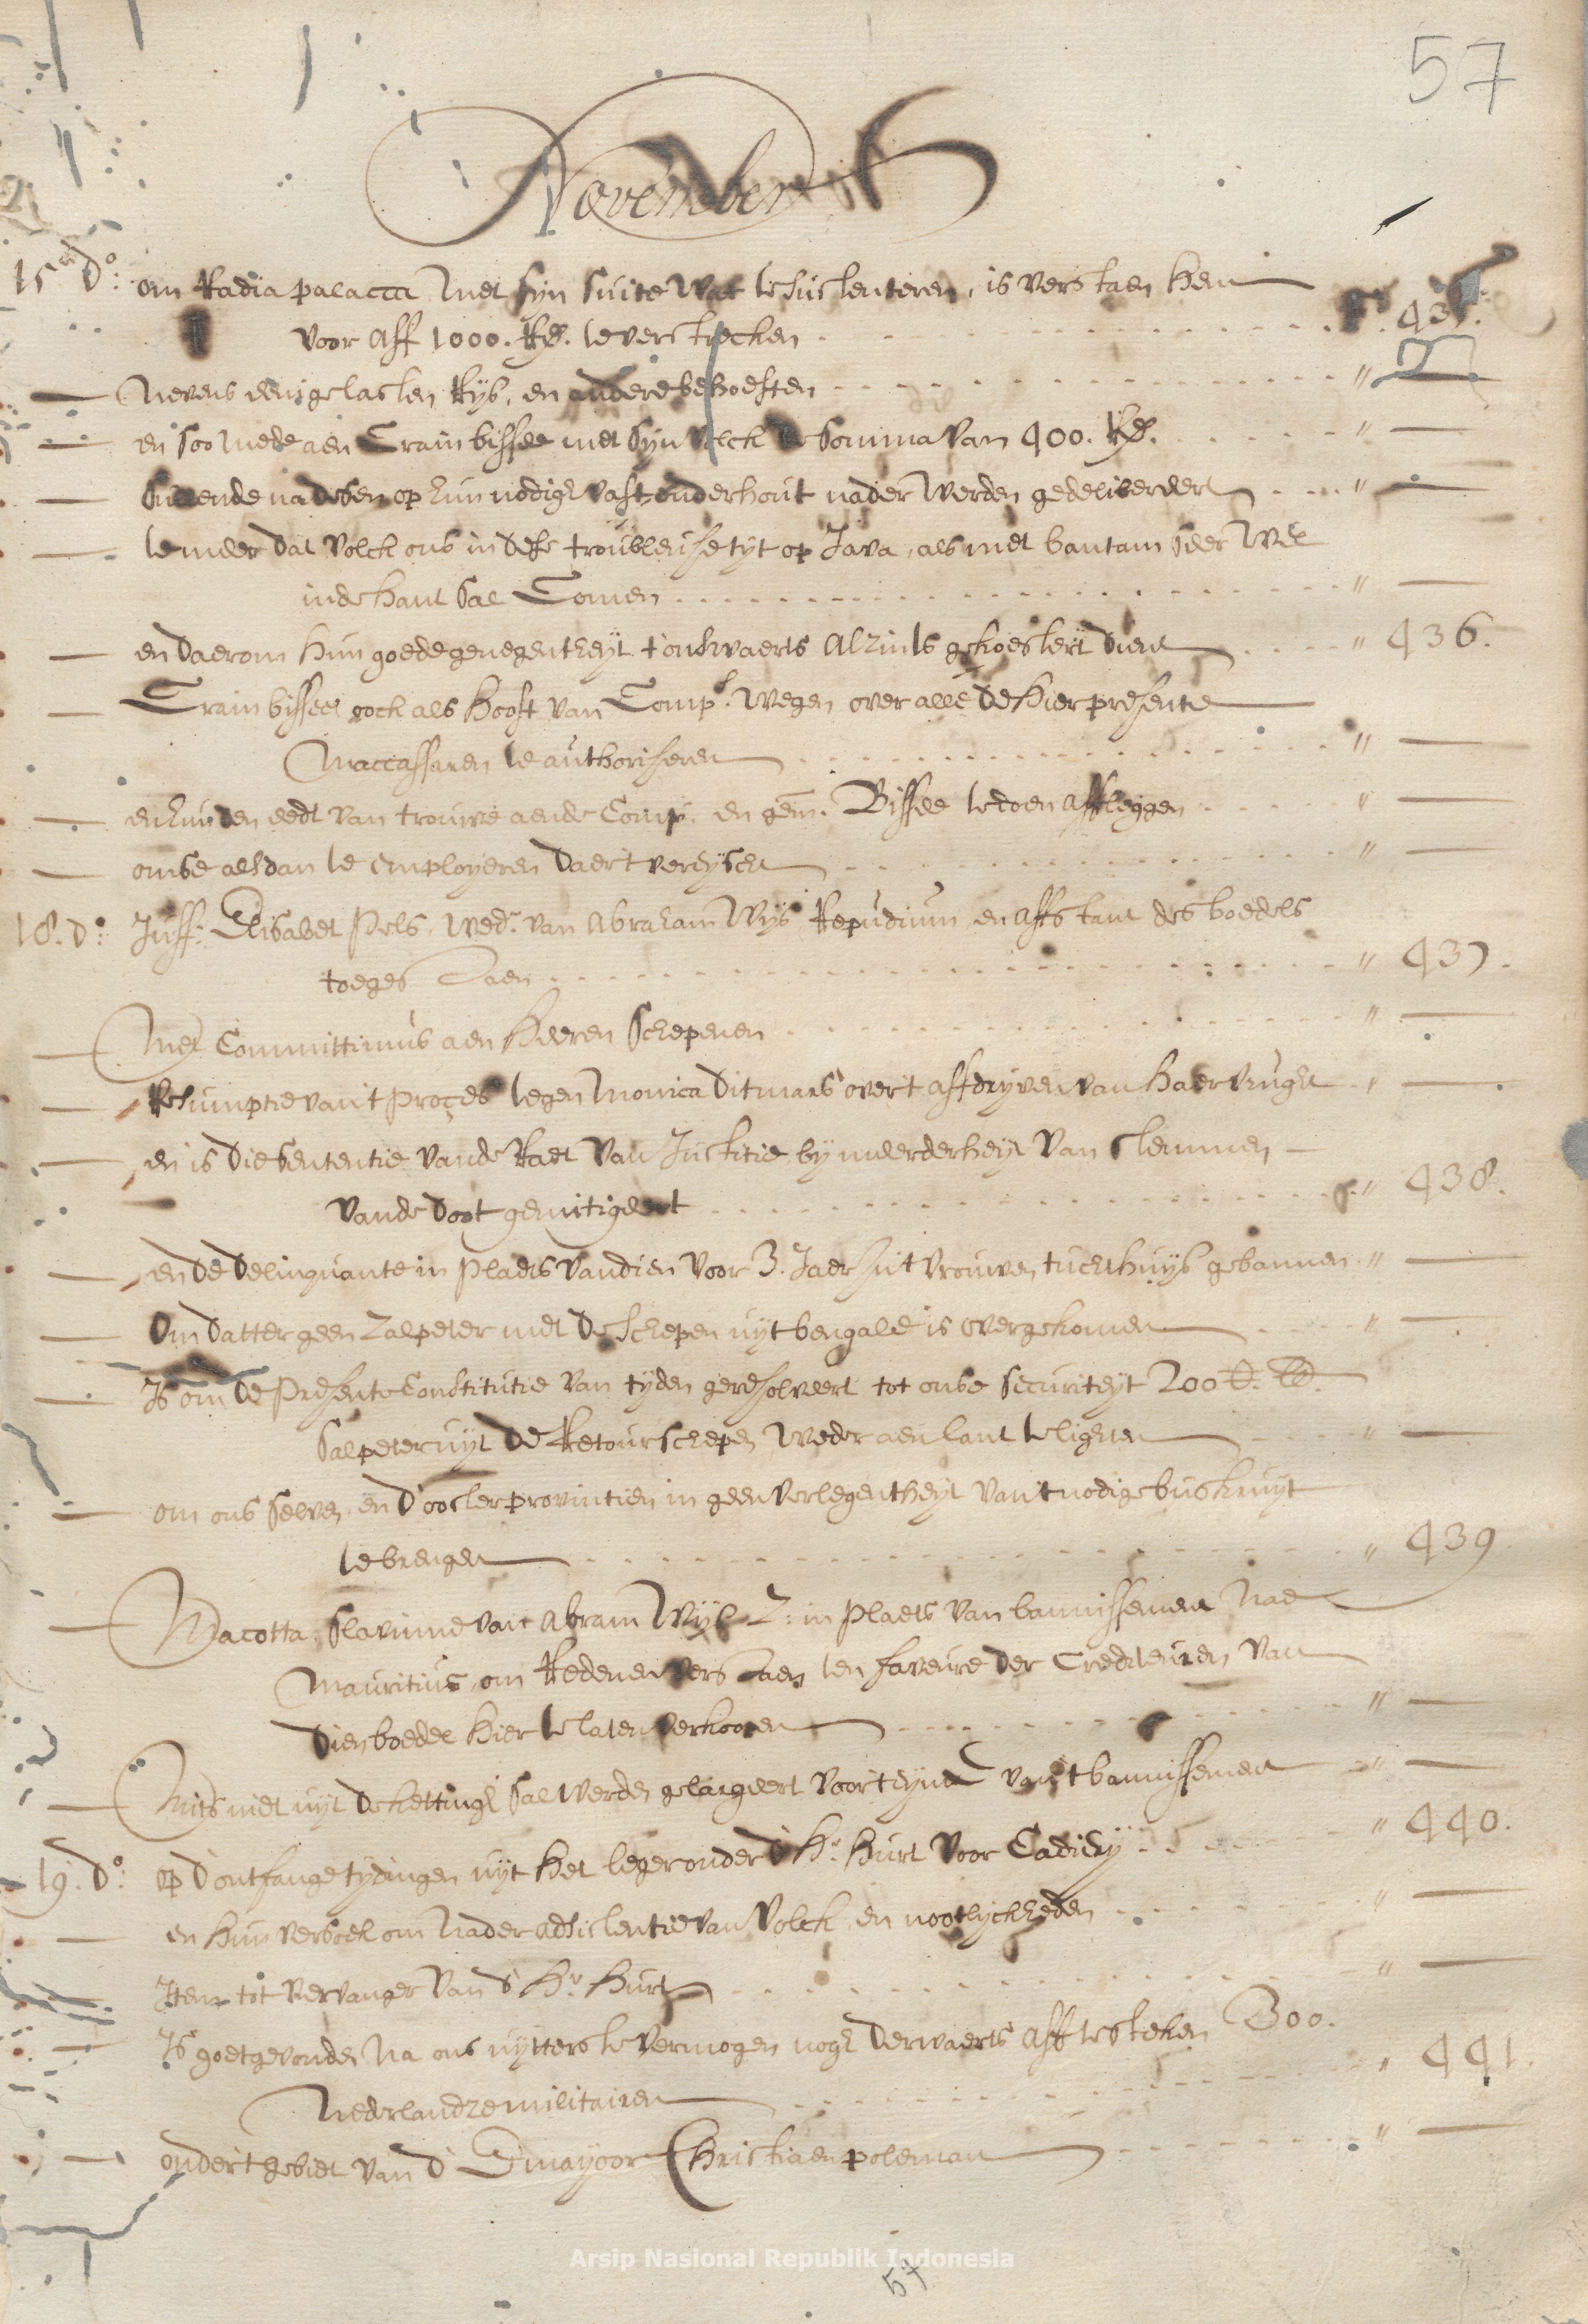 57
November
15 do: om Radia palacca met sijn suite wat te sustenteren, is verstaen hem
voor aff 1000. Rs. te verstrecken 435.
Nevens eenige lasten Rijs, en andere behoeften "
en soo mede aen Crain bissee met sijn volck de somma van 400. Rs. "
Sullende nadesen op hun nodigh vast onderhout nader werden gedelibereert "
te meer dat volck ons in dese troubleuse tijt op Java, als met bantam seer wel
inde hant sal Comen "
en daerom hun goede genegentheijt t'onswaerts alzints gekoestert dient " 436.
Crain bissee oock als hooft van Comps. wegen over alle de hier presente
Maccassaren te authoriseren "
en hun den eedt van trouwe aende Comp. en gem. Bissee te doen affleggen "
omse alsdan te employeren daer't vereijscht "
18. do: Juffr. Elisabet Pels, wede. van Abraham Wijs Repudium en affstant des boedels
toegestaen " 437.
Met Committimus aen heeren Schepenen "
Resumptie van't Proces tegen Monica Ditmars over't affdrijven van haer vrught "
en is die sententie vande Raet van Justitie bij meerderheijt van stemmen
vande doot gemitigeert " 438.
en de delinquante in plaets vandien voor 3. Jaer in't vrouwen tuchthuijs gebannen "
Om datter geen Zalpeter met de schepen uijt bengale is overgekomen "
Is om de presente Constitutie van tijden geresolveert tot onse securiteijt 200
Salpeter uijt de Retourschepen weder aen lant te lighten "
om ons selven, en d'ooster provintien in geen verlegentheijt van't nodige buskruijt
te brengen " 439
Macotta slavinne van Abram Wijs in plaets van bannissement nae
Mauritius, om Redenen verstaen ten faveure der Crediteuren van
dien boedel hier te laten verkoopen "
Mits niet uijt de kettingh sal werden gelargeert voor't eijnde van't bannissement "
19. do: op d'ontfange tijdingen uijt het leger onder d'Hr. Hurt voor Cadirij " 440.
en hun versoek om nader adsistentie van volck en nootlijckheden "
Item tot vervanger van d'Hr. Hurt "
Is goetgevonden na ons uijtterste vermogen nogh derwaerts aff te steken 300.
Nederlandze militairen " 441.
onder't gebiet van d' Emayoor Christiaen poleman "
Arsip Nasional Republik Indonesia
57